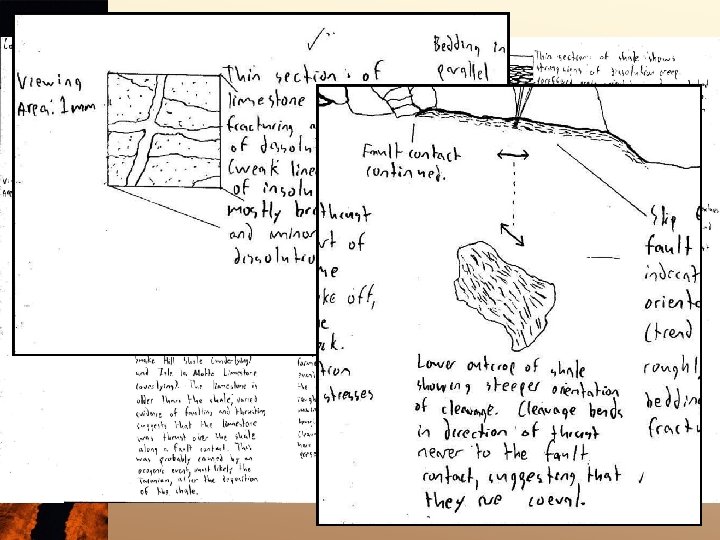 Viewing
Area: 1mm
Thin section: of
limestone
fracturing
of dissolu
(weak line
of insolu
mostly br
and minor
dissolutio
Bedding in
parallel
Thin section: of shale shows
strong signs of dissolution creep
Fault contact
continued.
thrust
rt of
me
ke off,
e
k.
tron
stresses
Skip
fault
indicat
orienta
(trend
roughl
bedding
fractu
Lower outcrop of shale
showing steeper orientation
of cleavage. Cleavage bends
in direction of thrust
nearer to the fault
contact, suggesting that
they are coeval.
Snake Hill Shale (underlying)
and Isle La Motte Limestone
(overlying). The limestone is
older than the shale; varied
evidence of faulting and thrusting
suggests that the limestone
was thrust over the shale
along a fault contact. This
was probably caused by an
orogenic event, most likely the
Taconian, after the deposition
of the shale.